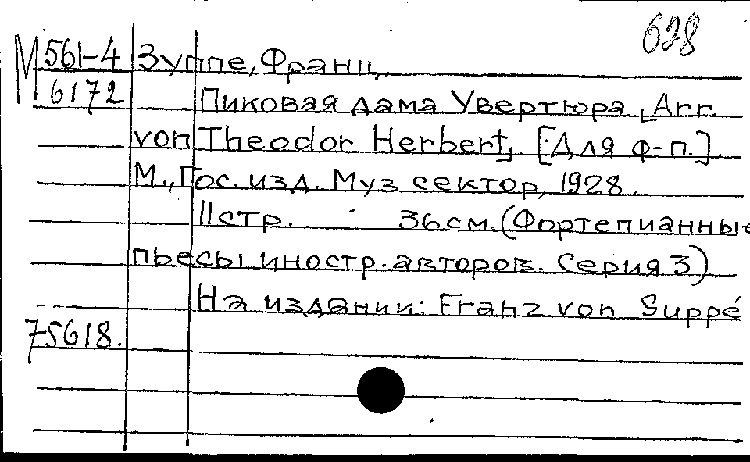 628
М 561-4 Зуппе, Франц
6172 Пиковая дама Увертюра, Arr.
von Theodor Herbert, [Для ф-п.]
М., Гос. изд. Муз сектор, 1928.
11стр. 36см. (Фортепианные
пьесы иностр. авторов. Серия 3)
На издании: Franz von Suppé
75618.